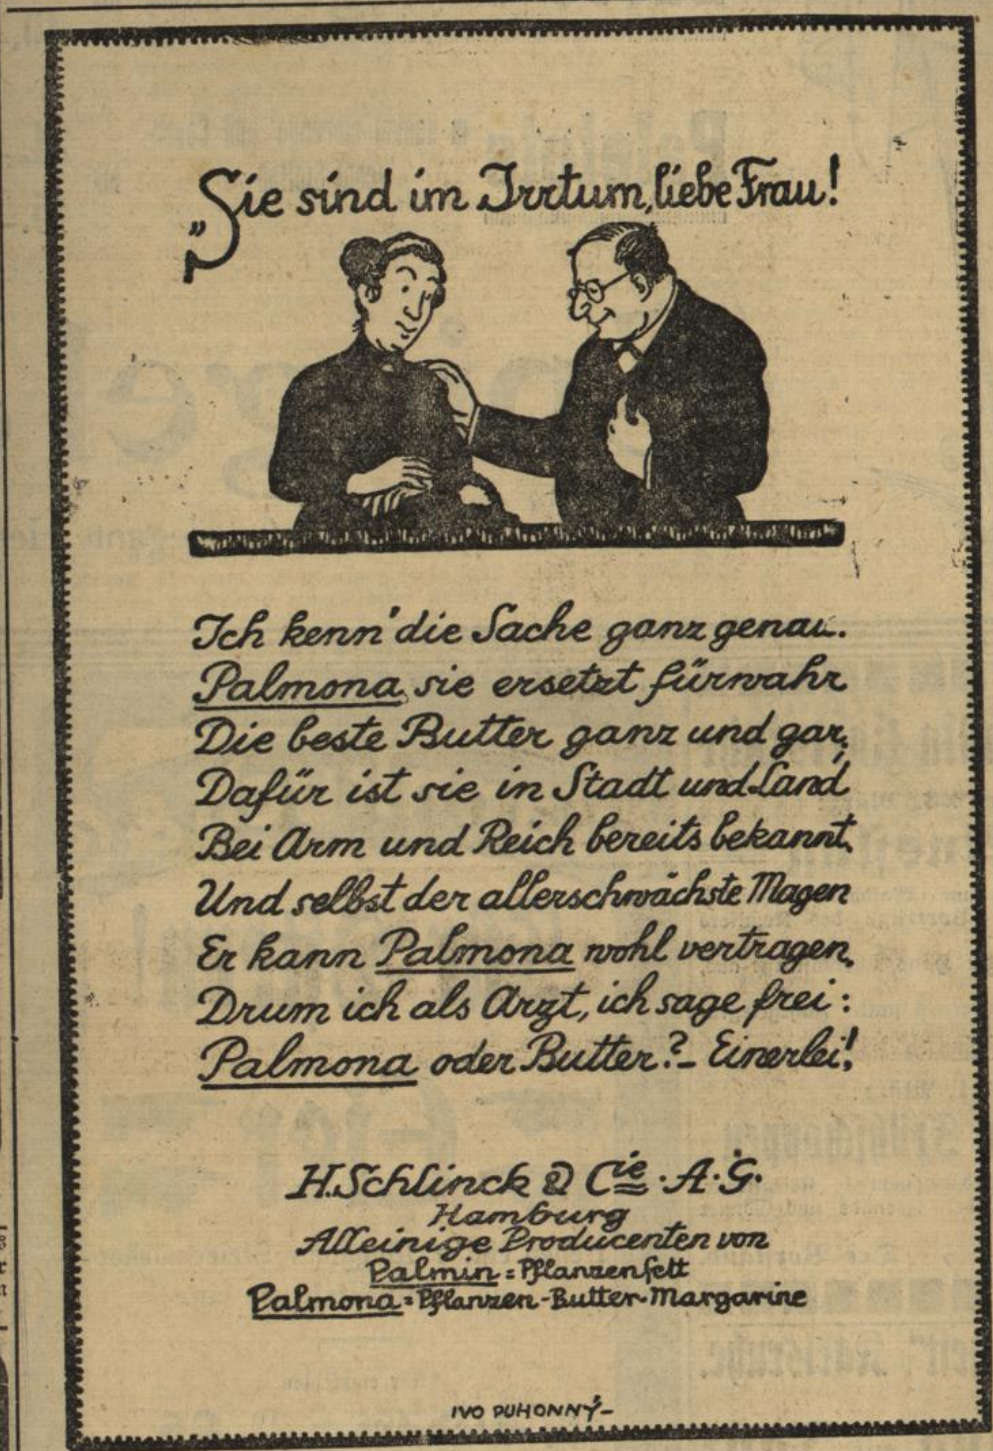 „Sie sind im Irrtum, liebe Frau!
Ich kenn' die Sache ganz genau.
Palmona, sie ersetzt fürwahr
Die beste Butter ganz und gar;
Dafür ist sie in Stadt und Land
Bei Arm und Reich bereits bekannt,
Und selbst der allerschwächste Magen
Er kann Palmona wohl vertragen,
Drum ich als Arzt, ich sage frei:
Palmona oder Butter? – Einerlei!
H. Schlinck & Cie. A.G.
Hamburg
Alleinige Producenten von
Palmin = Pflanzenfett
Palmona = Pflanzen-Butter-Margarine
IVO PUHONNÝ –